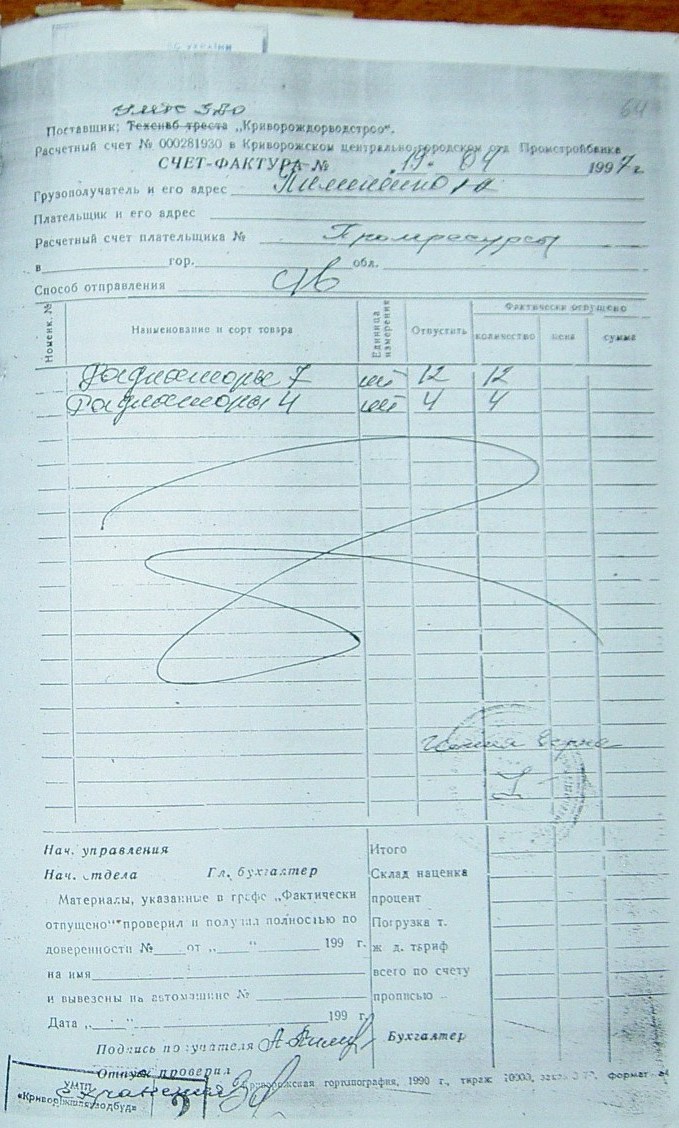 УКРАЇНИ
64
Поставщик: Техснаб треста „Криворождорводстрой“.
Расчетный счет № 000281930 в Криворожском центрально-городском отд Промстройбанка
СЧЕТ-ФАКТУРА № 19. 04 1997 г.
Грузополучатель и его адрес
Плательщик и его адрес
Расчетный счет плательщика № Промресурсы
в гор. обл.
Способ отправления
Номенк. №
Наименование и сорт товара
Единица измерения
Отпустить
Фактически отпущено
количество
цена
сумма
Радиаторы 7 шт 12 12
Радиаторы 4 шт 4 4
Копия верна
Нач. управления
Нач. отдела Гл. бухгалтер
Материалы, указанные в графе „Фактически
отпущено“ проверил и получил полностью по
доверенности № от „ “ 199 г.
на имя
и вывезены на автомашине №
Дата „ “ 199 г.
Итого
Склад наценка
процент
Погрузка т.
ж д. тариф
всего по счету
прописью
Подпись получателя
Бухгалтер
Отпуск проверил
Криворожская гортипография, 1990 г., тираж 10000, формат
УМТП